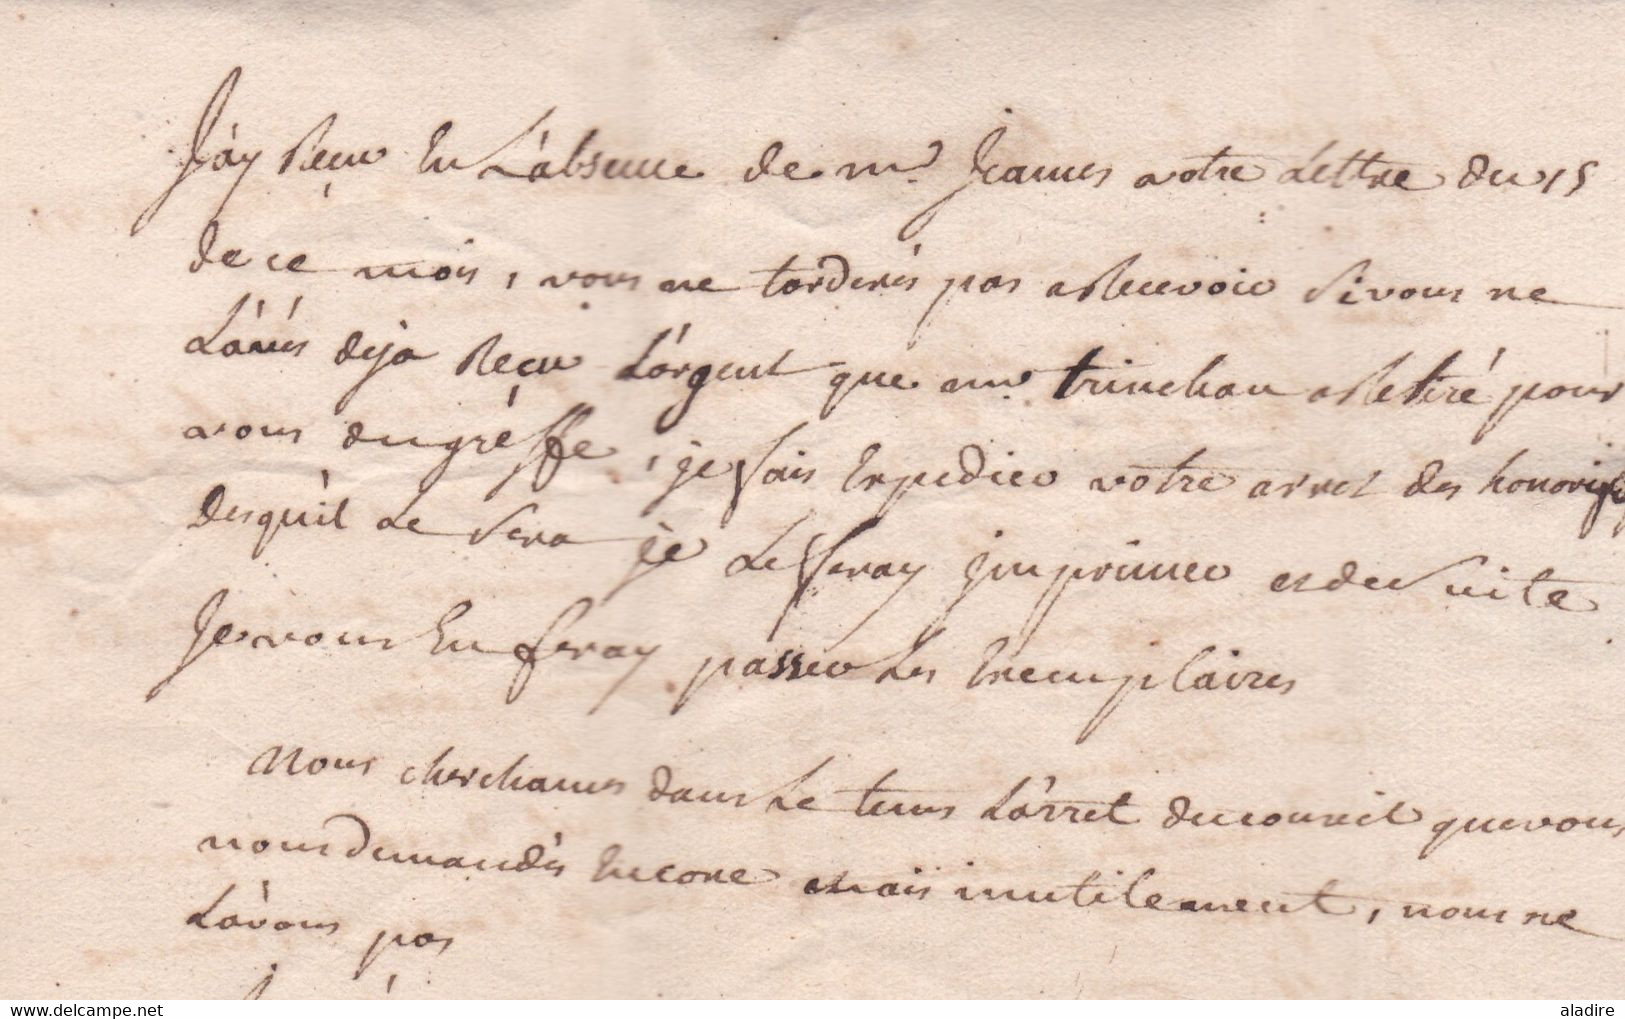 J'ay Reçu En L'absence de mr Jeames votre Lettre du 15
de ce mois, vous ne tarderés pas a Recevoir Si vous ne
L'avés déja Reçu L'argent que mr trinchan a Retiré pour
vous du gréffe, je fais Expedier votre arret des honorifiq
des qu'il Le Sera je Le feray Imprimer et de Suite
Je vous En feray passer Les Exemplaires
Nous cherchames dans Le tems L'arret du conseil que vous
nous demandés Encore mais inutilement, nous ne
L'avons pas
aladire
www.delcampe.net